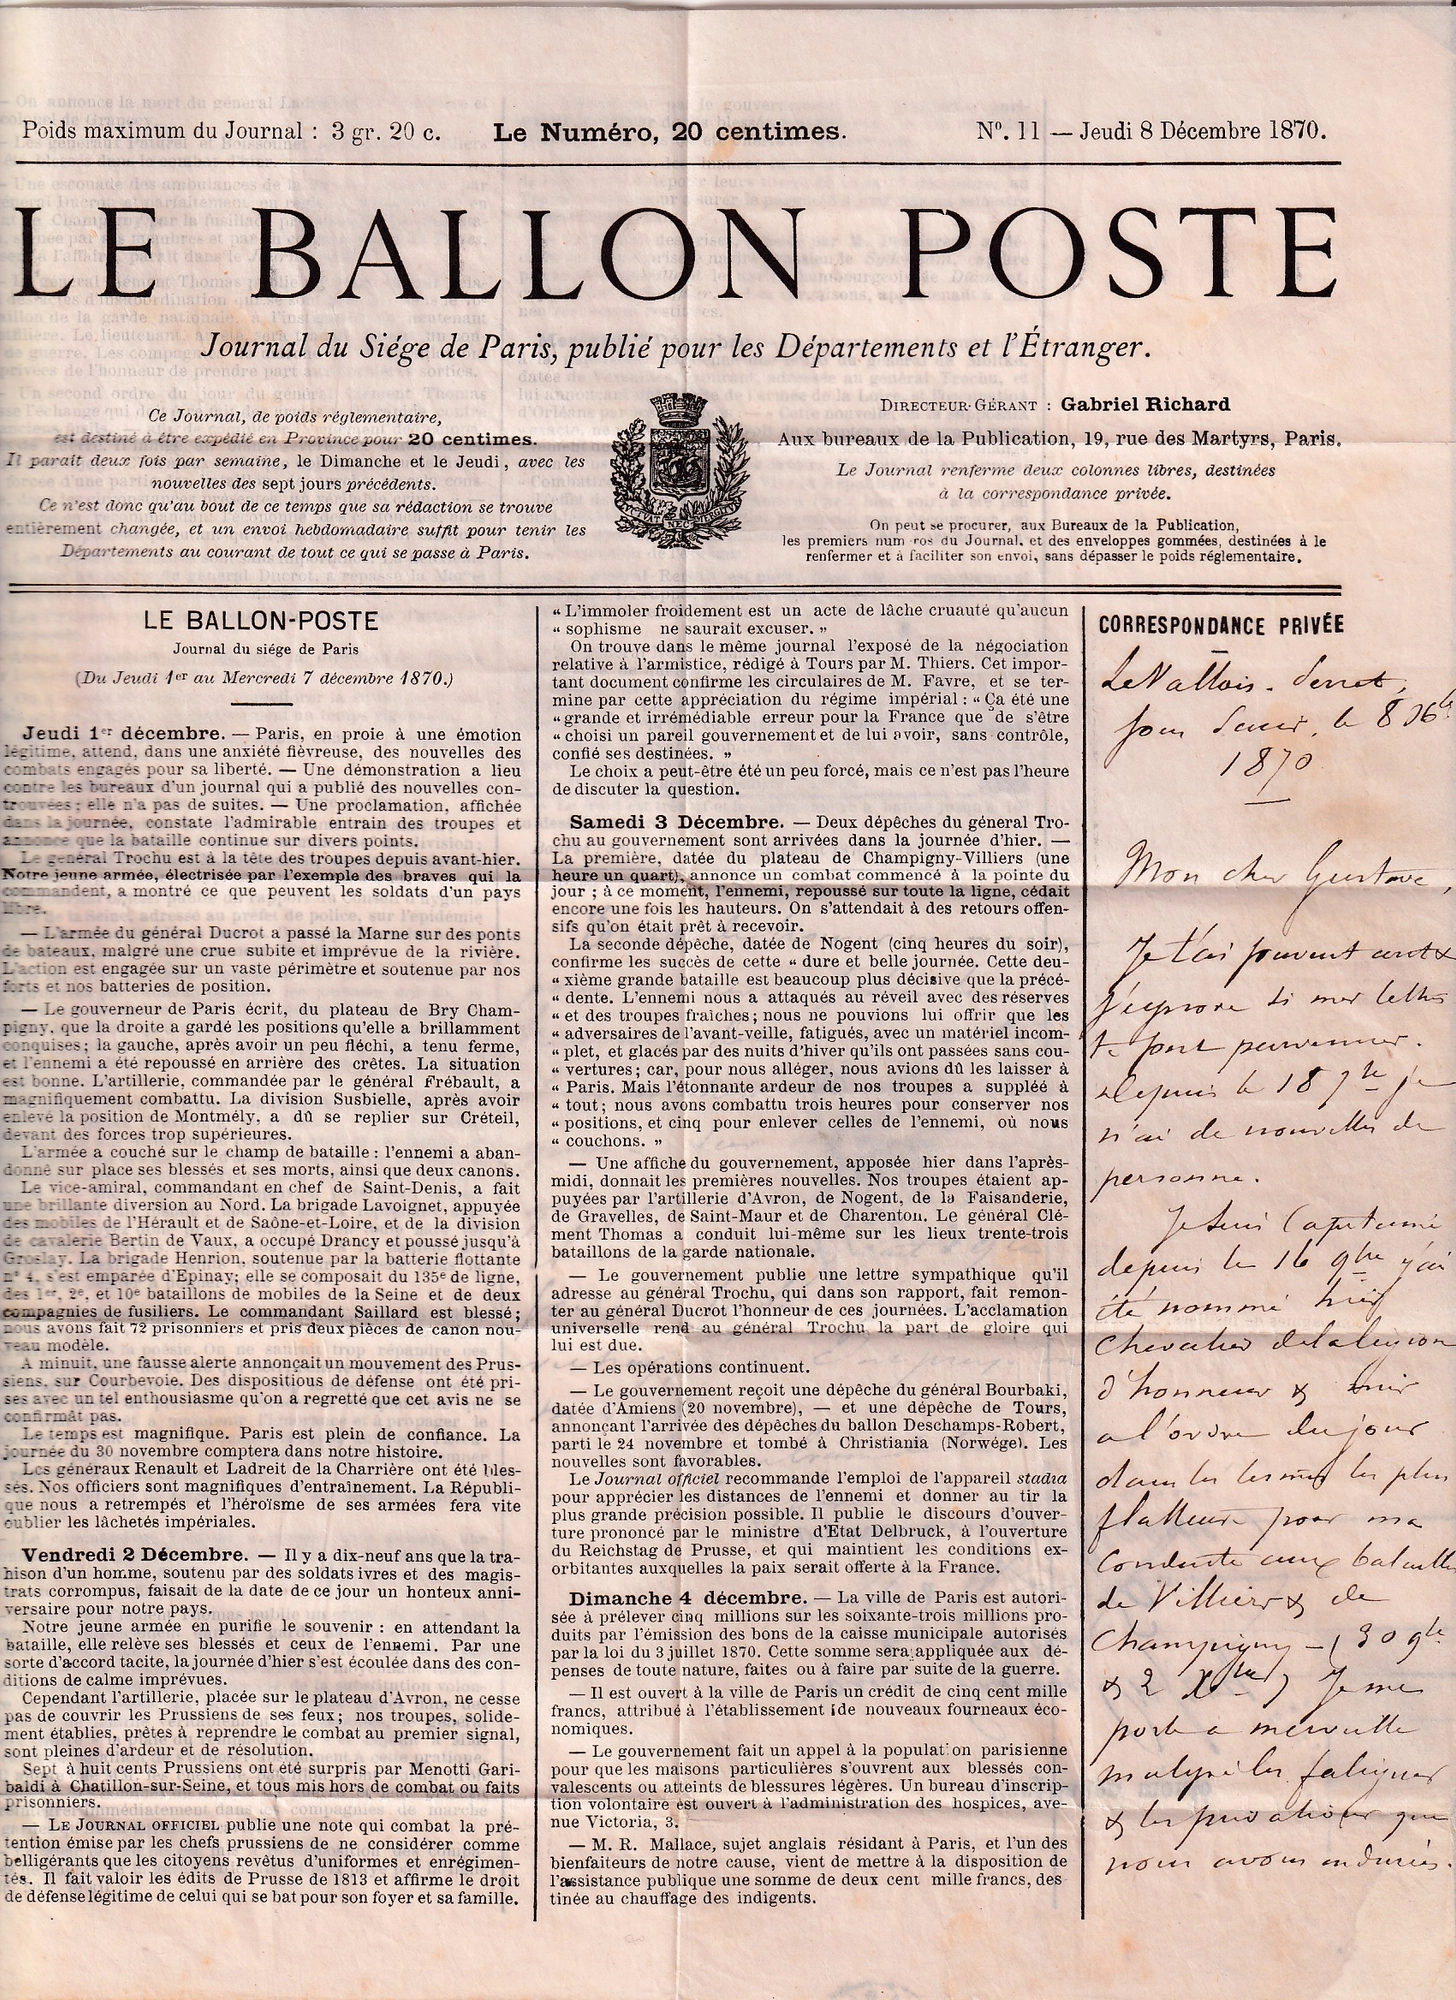 Poids maximum du Journal : 3 gr. 20 c.
Le Numéro, 20 centimes.
N°. 11 — Jeudi 8 Décembre 1870.
LE BALLON POSTE
Journal du Siége de Paris, publié pour les Départements et l'Étranger.
Ce Journal, de poids réglementaire,
est destiné à être expédié en Province pour 20 centimes.
Il parait deux fois par semaine, le Dimanche et le Jeudi, avec les
nouvelles des sept jours précédents.
Ce n'est donc qu'au bout de ce temps que sa rédaction se trouve
entièrement changée, et un envoi hebdomadaire suffit pour tenir les
Départements au courant de tout ce qui se passe à Paris.
DIRECTEUR-GÉRANT : Gabriel Richard
Aux bureaux de la Publication, 19, rue des Martyrs, Paris.
Le Journal renferme deux colonnes libres, destinées
à la correspondance privée.
On peut se procurer, aux Bureaux de la Publication,
les premiers num ros du Journal, et des enveloppes gommées, destinées à le
renfermer et à faciliter son envoi, sans dépasser le poids réglementaire.
LE BALLON-POSTE
Journal du siége de Paris
(Du Jeudi 1er au Mercredi 7 décembre 1870.)
Jeudi 1er décembre. — Paris, en proie à une émotion
légitime, attend, dans une anxiété fièvreuse, des nouvelles des
combats engagés pour sa liberté. — Une démonstration a lieu
contre les bureaux d'un journal qui a publié des nouvelles con-
trouvées ; elle n'a pas de suites. — Une proclamation, affichée
dans la journée, constate l'admirable entrain des troupes et
annonce que la bataille continue sur divers points.
Le général Trochu est à la tête des troupes depuis avant-hier.
Notre jeune armée, électrisée par l'exemple des braves qui la
commandent, a montré ce que peuvent les soldats d'un pays
libre.
— L'armée du général Ducrot a passé la Marne sur des ponts
de bateaux, malgré une crue subite et imprévue de la rivière.
L'action est engagée sur un vaste périmètre et soutenue par nos
forts et nos batteries de position.
— Le gouverneur de Paris écrit, du plateau de Bry Cham-
pigny, que la droite a gardé les positions qu'elle a brillamment
conquises ; la gauche, après avoir un peu fléchi, a tenu ferme,
et l'ennemi a été repoussé en arrière des crêtes. La situation
est bonne. L'artillerie, commandée par le général Frébault, a
magnifiquement combattu. La division Susbielle, après avoir
enlevé la position de Montmély, a dû se replier sur Créteil,
devant des forces trop supérieures.
L'armée a couché sur le champ de bataille : l'ennemi a aban-
donné sur place ses blessés et ses morts, ainsi que deux canons.
Le vice-amiral, commandant en chef de Saint-Denis, a fait
une brillante diversion au Nord. La brigade Lavoignet, appuyée
des mobiles de l'Hérault et de Saône-et-Loire, et de la division
de cavalerie Bertin de Vaux, a occupé Drancy et poussé jusqu'à
Groslay. La brigade Henrion, soutenue par la batterie flottante
n° 4, s'est emparée d'Epinay; elle se composait du 135e de ligne,
des 1er, 2e, et 10e bataillons de mobiles de la Seine et de deux
compagnies de fusiliers. Le commandant Saillard est blessé ;
nous avons fait 72 prisonniers et pris deux pièces de canon nou-
veau modèle.
A minuit, une fausse alerte annonçait un mouvement des Prus-
siens, sur Courbevoie. Des dispositious de défense ont été pri-
ses avec un tel enthousiasme qu'on a regretté que cet avis ne se
confirmât pas.
Le temps est magnifique. Paris est plein de confiance. La
journée du 30 novembre comptera dans notre histoire.
Les généraux Renault et Ladreit de la Charrière ont été bles-
sés. Nos officiers sont magnifiques d'entraînement. La Républi-
que nous a retrempés et l'héroïsme de ses armées fera vite
oublier les lâchetés impériales.
Vendredi 2 Décembre. — Il y a dix-neuf ans que la tra-
hison d'un homme, soutenu par des soldats ivres et des magis-
trats corrompus, faisait de la date de ce jour un honteux anni-
versaire pour notre pays.
Notre jeune armée en purifie le souvenir : en attendant la
bataille, elle relève ses blessés et ceux de l'ennemi. Par une
sorte d'accord tacite, la journée d'hier s'est écoulée dans des con-
ditions de calme imprévues.
Cependant l'artillerie, placée sur le plateau d'Avron, ne cesse
pas de couvrir les Prussiens de ses feux ; nos troupes, solide-
ment établies, prêtes à reprendre le combat au premier signal,
sont pleines d'ardeur et de résolution.
Sept à huit cents Prussiens ont été surpris par Menotti Gari-
baldi à Chatillon-sur-Seine, et tous mis hors de combat ou faits
prisonniers.
— LE JOURNAL OFFICIEL publie une note qui combat la pré-
tention émise par les chefs prussiens de ne considérer comme
belligérants que les citoyens revêtus d'uniformes et enrégimen-
tés. Il fait valoir les édits de Prusse de 1813 et affirme le droit
de défense légitime de celui qui se bat pour son foyer et sa famille.
“ L'immoler froidement est un acte de lâche cruauté qu'aucun
“ sophisme ne saurait excuser. ”
On trouve dans le même journal l'exposé de la négociation
relative à l'armistice, rédigé à Tours par M. Thiers. Cet impor-
tant document confirme les circulaires de M. Favre, et se ter-
mine par cette appréciation du régime impérial : “ Ça été une
“ grande et irrémédiable erreur pour la France que de s'être
“ choisi un pareil gouvernement et de lui avoir, sans contrôle,
confié ses destinées. ”
Le choix a peut-être été un peu forcé, mais ce n'est pas l'heure
de discuter la question.
Samedi 3 Décembre. — Deux dépêches du général Tro-
chu au gouvernement sont arrivées dans la journée d'hier. —
La première, datée du plateau de Champigny-Villiers (une
heure un quart), annonce un combat commencé à la pointe du
jour ; à ce moment, l'ennemi, repoussé sur toute la ligne, cédait
encore une fois les hauteurs. On s'attendait à des retours offen-
sifs qu'on était prêt à recevoir.
La seconde dépêche, datée de Nogent (cinq heures du soir),
confirme les succès de cette “ dure et belle journée. Cette deu-
“ xième grande bataille est beaucoup plus décisive que la précé-
“ dente. L'ennemi nous a attaqués au réveil avec des réserves
“ et des troupes fraîches ; nous ne pouvions lui offrir que les
“ adversaires de l'avant-veille, fatigués, avec un matériel incom-
“ plet, et glacés par des nuits d'hiver qu'ils ont passées sans cou-
“ vertures ; car, pour nous alléger, nous avions dû les laisser à
“ Paris. Mais l'étonnante ardeur de nos troupes a suppléé à
“ tout ; nous avons combattu trois heures pour conserver nos
“ positions, et cinq pour enlever celles de l'ennemi, où nous
“ couchons. ”
— Une affiche du gouvernement, apposée hier dans l'après-
midi, donnait les premières nouvelles. Nos troupes étaient ap-
puyées par l'artillerie d'Avron, de Nogent, de la Faisanderie,
de Gravelles, de Saint-Maur et de Charenton. Le général Clé-
ment Thomas a conduit lui-même sur les lieux trente-trois
bataillons de la garde nationale.
— Le gouvernement publie une lettre sympathique qu'il
adresse au général Trochu, qui dans son rapport, fait remon-
ter au général Ducrot l'honneur de ces journées. L'acclamation
universelle rend au général Trochu la part de gloire qui
lui est due.
— Les opérations continuent.
— Le gouvernement reçoit une dépêche du général Bourbaki,
datée d'Amiens (20 novembre), — et une dépêche de Tours,
annonçant l'arrivée des dépêches du ballon Deschamps-Robert,
parti le 24 novembre et tombé à Christiania (Norwége). Les
nouvelles sont favorables.
Le Journal officiel recommande l'emploi de l'appareil stadia
pour apprécier les distances de l'ennemi et donner au tir la
plus grande précision possible. Il publie le discours d'ouver-
ture prononcé par le ministre d'Etat Delbruck, à l'ouverture
du Reichstag de Prusse, et qui maintient les conditions ex-
orbitantes auxquelles la paix serait offerte à la France.
Dimanche 4 décembre. — La ville de Paris est autori-
sée à prélever cinq millions sur les soixante-trois millions pro-
duits par l'émission des bons de la caisse municipale autorisés
par la loi du 3 juillet 1870. Cette somme sera appliquée aux dé-
penses de toute nature, faites ou à faire par suite de la guerre.
— Il est ouvert à la ville de Paris un crédit de cinq cent mille
francs, attribué à l'établissement de nouveaux fourneaux éco-
nomiques.
— Le gouvernement fait un appel à la population parisienne
pour que les maisons particulières s'ouvrent aux blessés con-
valescents ou atteints de blessures légères. Un bureau d'inscrip-
tion volontaire est ouvert à l'administration des hospices, ave-
nue Victoria, 3.
— M. R. Mallace, sujet anglais résidant à Paris, et l'un des
bienfaiteurs de notre cause, vient de mettre à la disposition de
l'assistance publique une somme de deux cent mille francs, des
tinée au chauffage des indigents.
CORRESPONDANCE PRIVÉE
LeVallois-Perret,
le 8
1870
Mon cher Gustave,
Je t'ai souvent
si mes lettres
te sont parvenues.
Depuis le 18 je
n'ai de nouvelles de
personne.
Je suis Capitaine
depuis le 16 9bre j'ai
été nommé hier
Chevalier de la légion
d'honneur & mis
a l'ordre du jour
dans les termes les plus
flatteurs pour ma
Conduite aux batailles
de Villiers & de
Champigny — (30 9bre
& 2 Xbre) Je me
porte a merveille
malgré les fatigues
& les privations que
nous avons endurées.